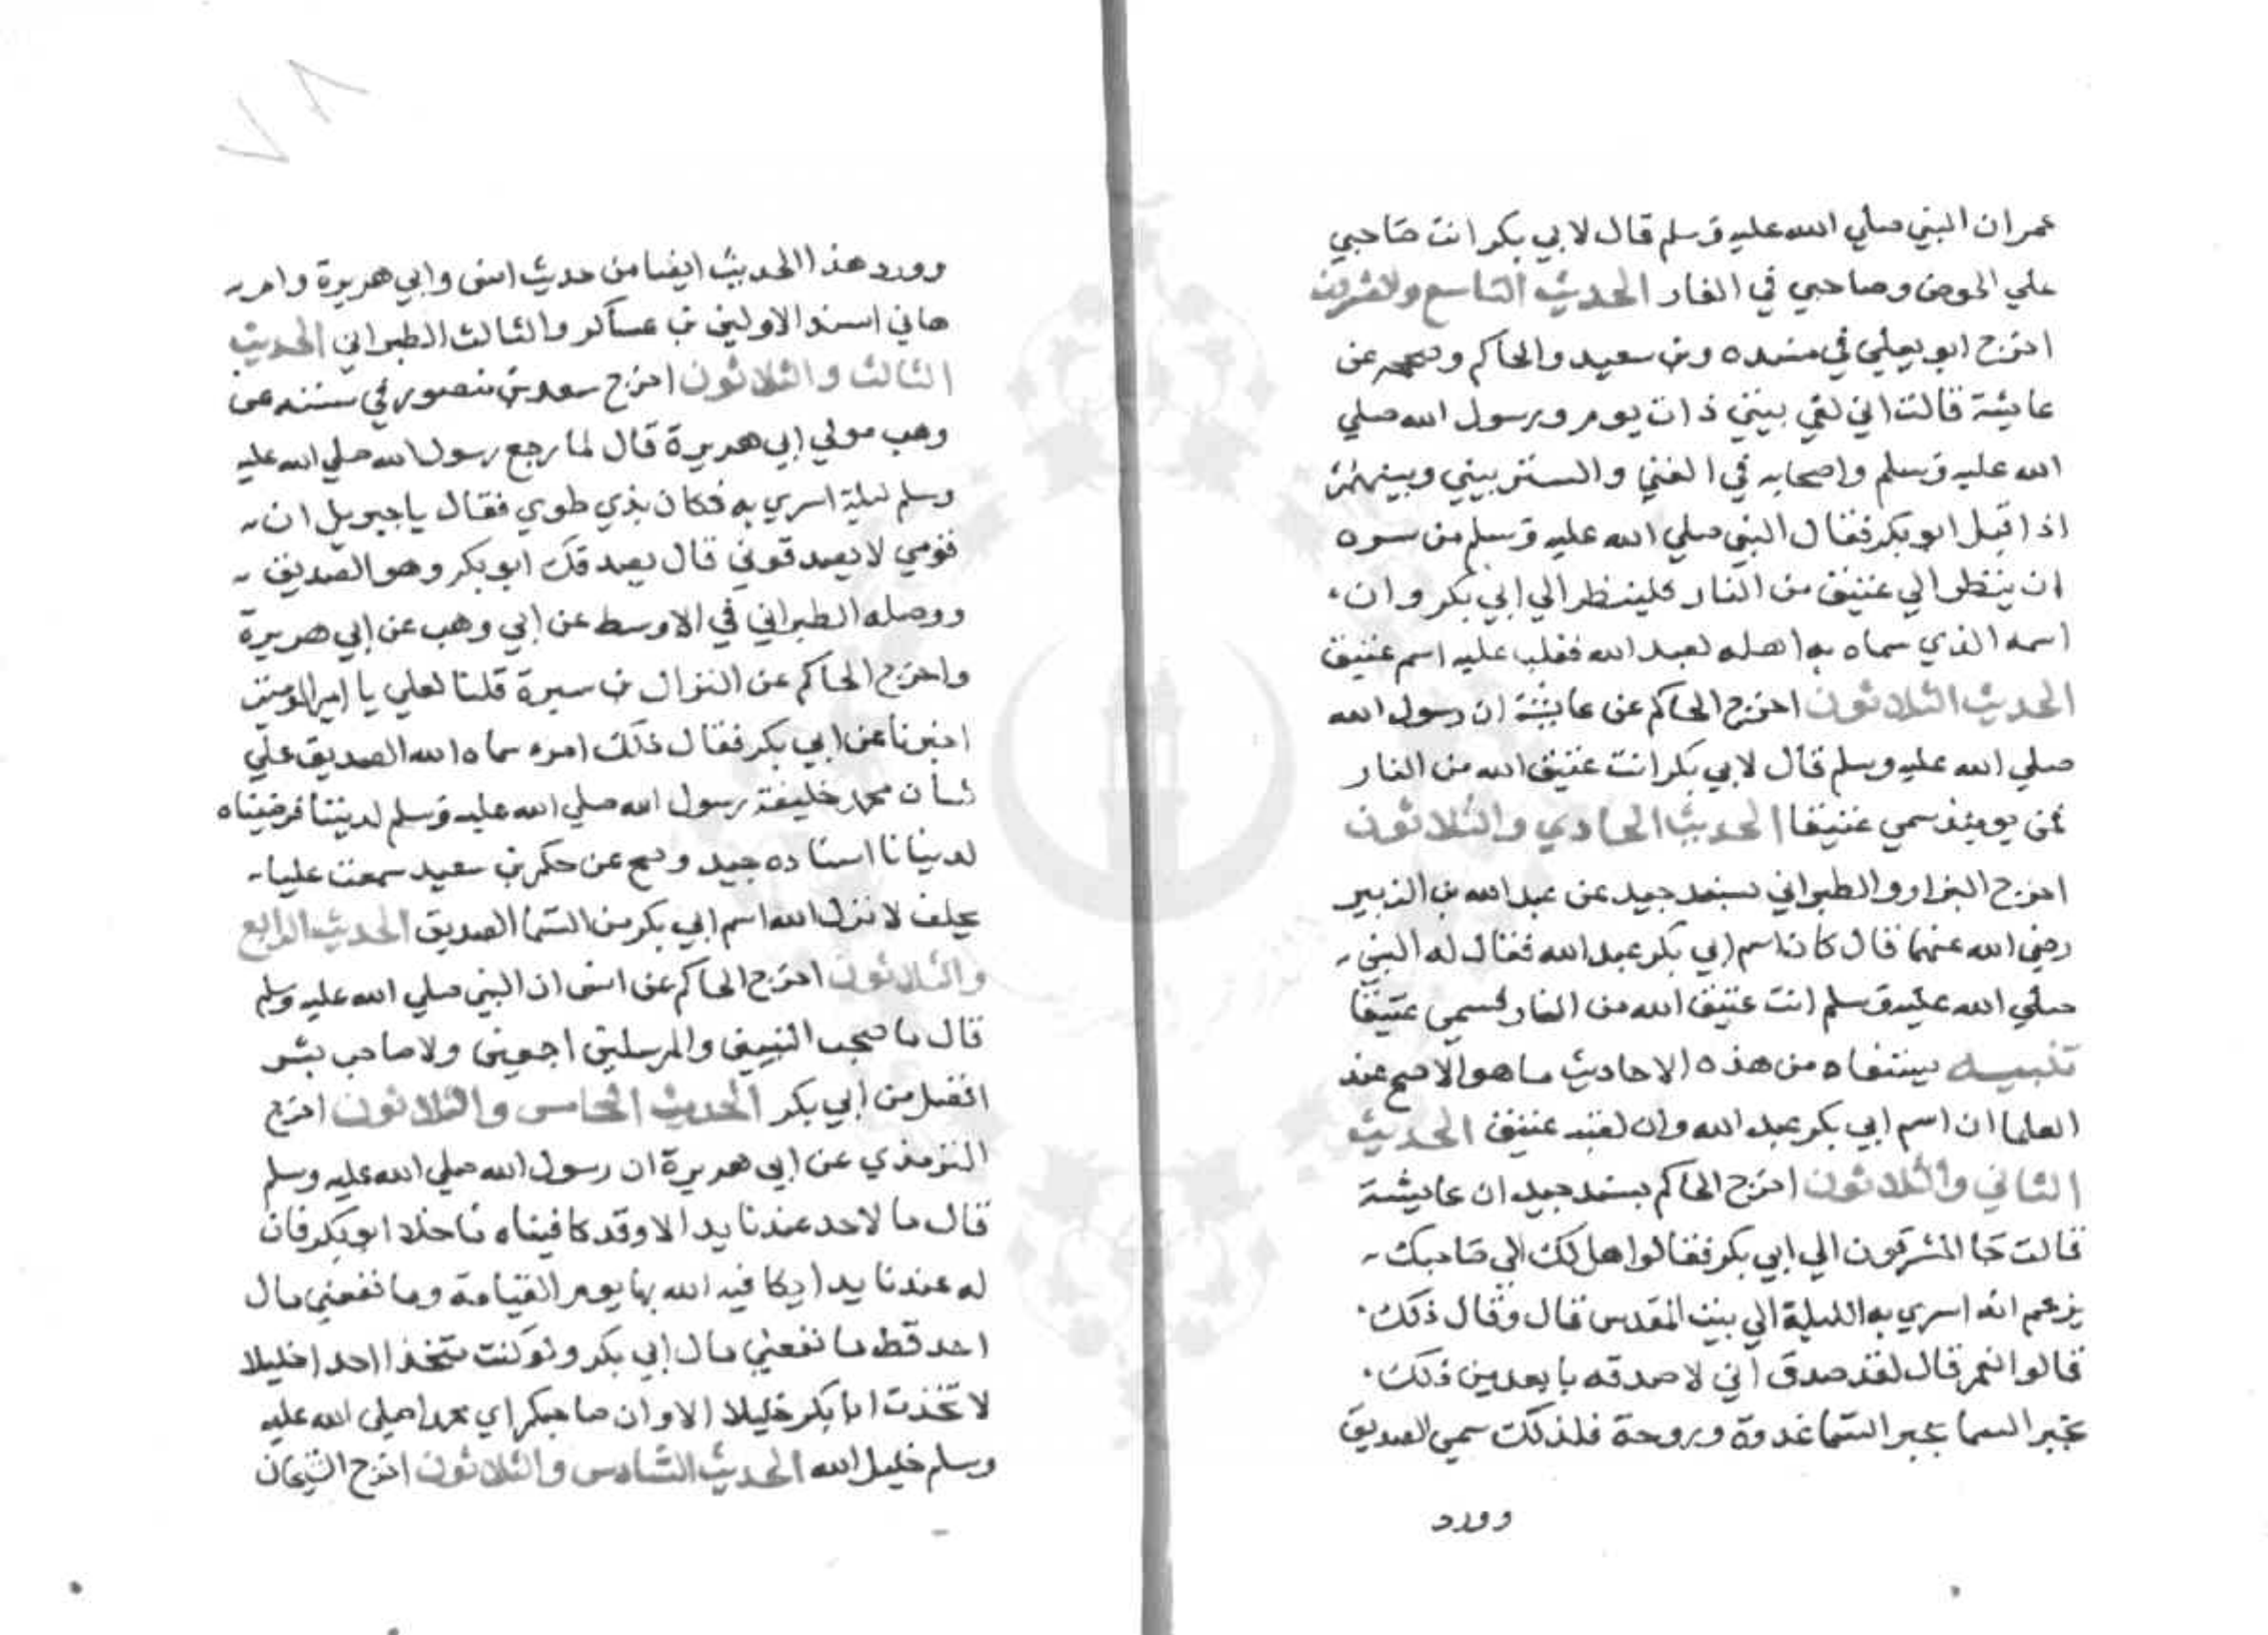 عمران النبي صلي الله عليه وسلم قال لابي بكر انت صاحبي
علي الحوض وصاحبي في الغار الحديث التاسع والعشرين
اخرج ابو يعلي في مسنده وبن سعيد والحاكم وصححه عن
عايشة قالت اني لفي بيتي ذات يوم ورسول الله صلي
الله عليه وسلم واصحابه في الفني والستر بيني وبينهم
اذ اقبل ابو بكر فقال النبي صلي الله عليه وسلم من سره
ان ينظر الي عتيق من النار فلينظر الي ابي بكر وان
اسمه الذي سماه به اهله لعبد الله فغلب عليه اسم عتيق
الحديث الثلاثون اخرج الحاكم عن عايشة ان رسول الله
صلي الله عليه وسلم قال لابي بكر انت عتيق الله من النار
فمن يومئذ سمي عتيقا الحديث الحادي والثلاثون
اخرج البزار والطبراني بسند جيد عن عبد الله بن الزبير
رضي الله عنهما قال كان اسم ابي بكر عبد الله فقال له النبي
صلي الله عليه وسلم انت عتيق الله من النار فسمي عتيقا
تنبيه يستفاد من هذه الاحاديث ما هو الاصح عند
العلما ان اسم ابي بكر عبد الله وان لقبه عتيق الحديث
الثاني والثلاثون اخرج الحاكم بسند جيد ان عايشة
قالت جا المشركون الي ابي بكر فقالوا هل لك الي صاحبك
يزعم انه اسري به الليلة الي بيت المقدس قال وقال ذلك
قالوا نعم قال لقد صدق اني لا صدقه بابعد من ذلك
بخبر السما بخبر السما غدوة وروحة فلذلك سمي الصديق
وورد
٧٨
وورد هذا الحديث ايضا من حديث انس وابي هريرة وام
هاني اسند الاولين بن عساكر والثالث الطبراني الحديث
الثالث والثلاثون اخرج سعد بن منصور في سننه عن
وهب مولي ابي هريرة قال لما رجع رسول الله صلي الله عليه
وسلم ليلة اسري به فكان بذي طوي فقال يا جبريل ان
قومي لا يصدقوني قال يصدقك ابو بكر وهو الصديق
ووصله الطبراني في الاوسط عن ابي وهب عن ابي هريرة
واخرج الحاكم عن النزال بن سبرة قلنا لعلي يا امير المومنين
اخبرنا عن ابي بكر فقال ذلك امره سماه الله الصديق علي
لسان محمد خليفة رسول الله صلي الله عليه وسلم لديننا فرضيناه
لدينانا اسناده جيد وصح عن حكم بن سعيد سمعت عليا
يحلف لانزل الله اسم ابي بكر من السما الصديق الحديث الرابع
والثلاثون اخرج الحاكم عن انس ان النبي صلي الله عليه وسلم
قال ما صحب النبيين والمرسلين اجمعين ولا صاحب بشر
افضل من ابي بكر الحديث الخامس والثلاثون اخرج
الترمذي عن ابي هريرة ان رسول الله صلي الله عليه وسلم
قال ما لاحد عندنا يد الا وقد كافيناه ما خلا ابو بكر فان
له عندنا يدا يكافيه الله بها يوم القيامة وما نفعني مال
احد قط ما نفعني مال ابي بكر ولو كنت متخذا احدا خليلا
لاتخذت ابا بكر خليلا الا وان صاحبكم اي محمدا صلي الله عليه
وسلم خليل الله الحديث السادس والثلاثون اخرج الشيخان